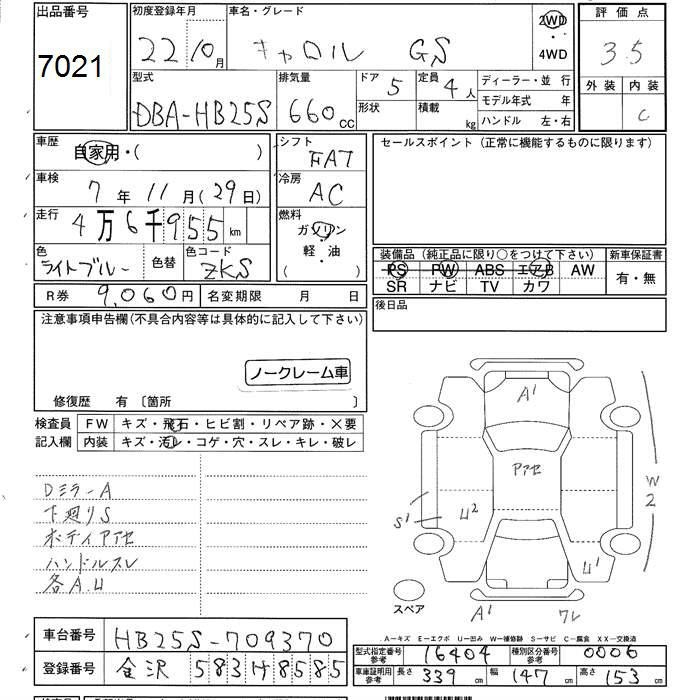 出品番号 初度登録年月 車名・グレード 2WD 評価点
7021 22 10月 キャロル GS ・ 4WD 3.5
型式 排気量 ドア 5 定員 4人 ディーラー・並 行 外装 内装
DBA-HB25S 660cc 形状 積載 kg モデル年式 年 C
ハンドル 左・右
車歴 自家用・( ) シフト FAT セールスポイント (正常に機能するものに限ります)
車検 7年 11月(29日) 冷房 AC
走行 4万6千955km 燃料 ガソリン
軽・油
( )
色 ライトブルー 色替 色コード ZKS 装備品 (純正品に限り○をつけて下さい) 新車保証書
PS PW ABS エアB AW 有・無
SR ナビ TV カワ
R券 9,060円 名変期限 月 日 後日品
注意事項申告欄(不具合内容等は具体的に記入して下さい)
ノークレーム車
修復歴 有 〔箇所 〕
検査員 FW キズ・飛石・ヒビ割・リペア跡・×要
記入欄 内装 キズ・汚レ・コゲ・穴・スレ・キレ・破レ
Dミラー A
下廻りS
ボディアアセ
ハンドルスレ
各A.U
A1
アアセ
W2
S1
U2
U1
スペア
A1
ワレ
A―キズ E―エクボ U―凹み W―補修跡 S―サビ C―腐食 XX―交換済
車台番号 HB25S-709370 型式指定番号 参考 16404 種別区分番号 参考 0006
登録番号 金沢 583 け 8585 車庫証明用 参考 長さ 339cm 幅 147cm 高さ 153cm